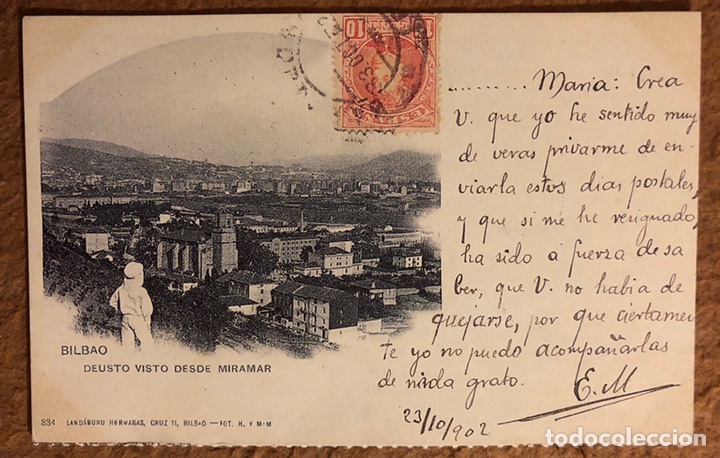 10
ESPAÑA
......... Maria: Crea
V. que yo he sentido muy
de veras privarme de en-
viarla estos dias postales,
y que si me he resignado,
ha sido á fuerza de sa
ber, que V. no habia de
quejarse, por que ciertamen
te yo no puedo acompañarlas
de nada grato.
E. M
23/10/902
BILBAO
DEUSTO VISTO DESDE MIRAMAR
834 LANDÁBURU HERMANAS, CRUZ 11, BILBAO — FOT. H. Y M-M
todocoleccion